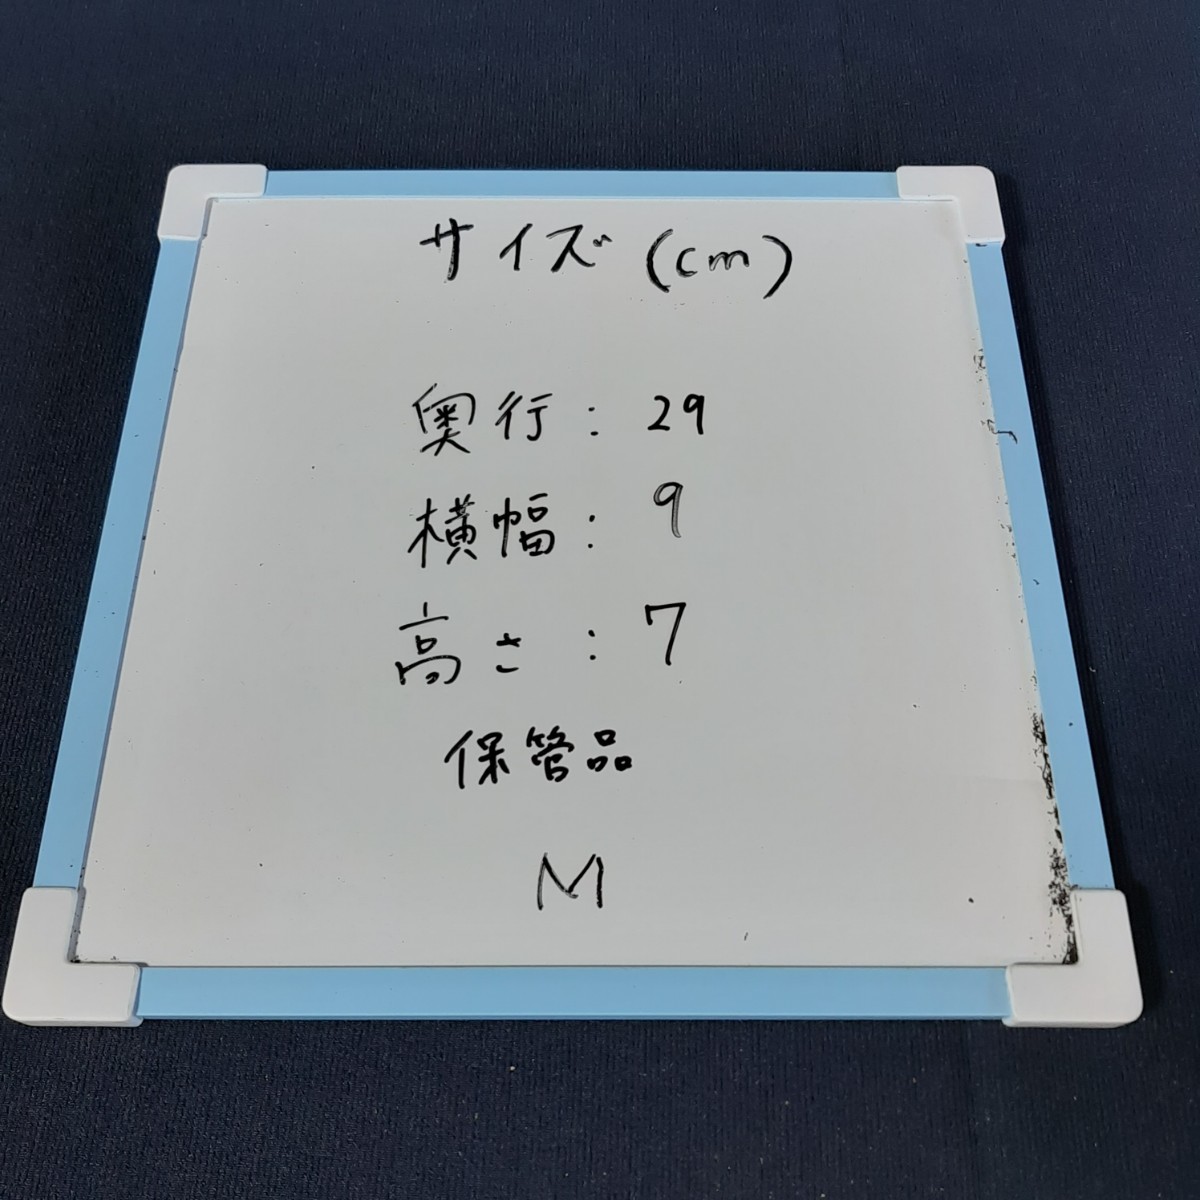 サイズ(cm)
奥行:29
横幅:9
高さ:7
保管品
M